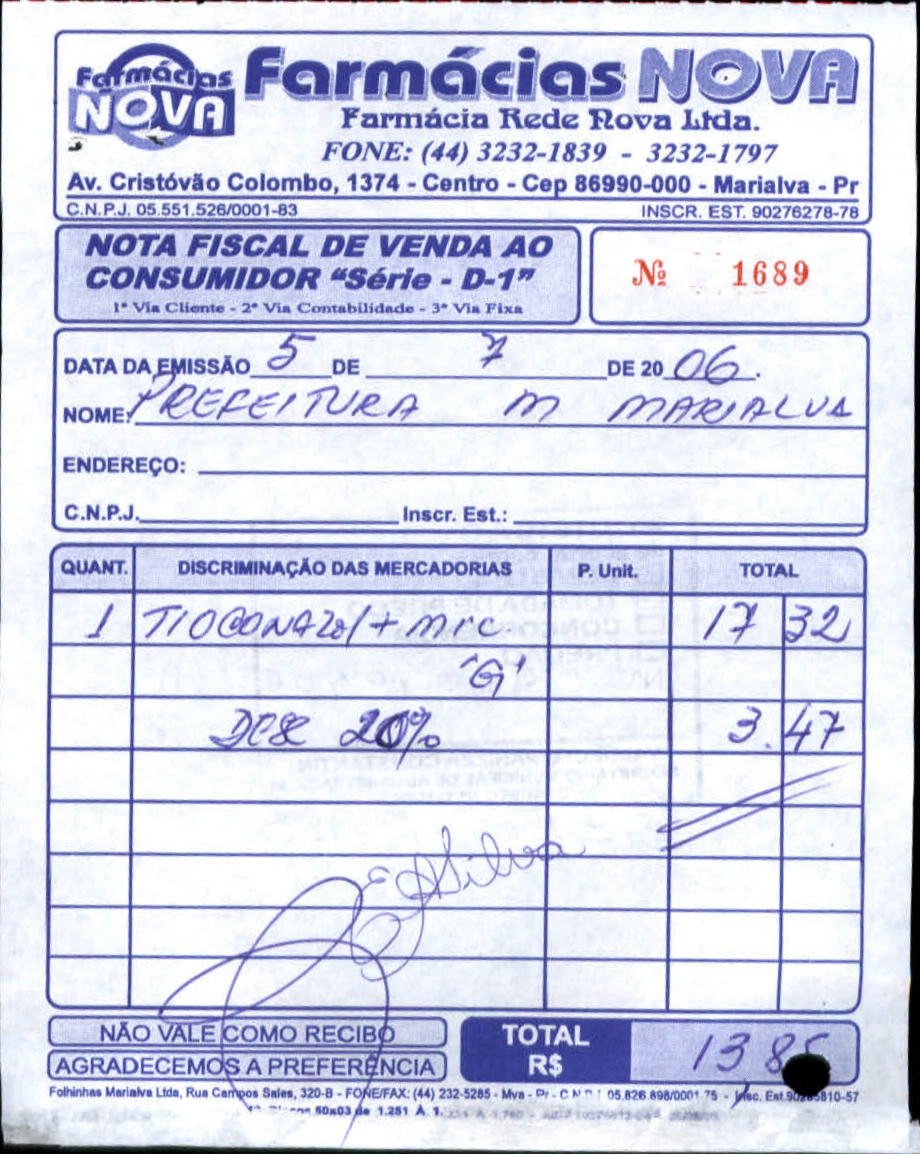 Farmácias
NOVA
Farmácias NOVA
Farmácia Rede Nova Ltda.
FONE: (44) 3232-1839 - 3232-1797
Av. Cristóvão Colombo, 1374 - Centro - Cep 86990-000 - Marialva - Pr
C.N.P.J. 05.551.526/0001-83 INSCR. EST. 90276278-78
NOTA FISCAL DE VENDA AO
CONSUMIDOR “Série - D-1”
1ª Via Cliente - 2ª Via Contabilidade - 3ª Via Fixa
Nº 1689
DATA DA EMISSÃO 5 DE 7 DE 20 06.
NOME: PREFEITURA M MARIALVA
ENDEREÇO:
C.N.P.J. Inscr. Est.:
QUANT. DISCRIMINAÇÃO DAS MERCADORIAS P. Unit. TOTAL
1 TIOCONAZOL + 17 32
"G"
DESC 20% 3.47
Silva
NÃO VALE COMO RECIBO
AGRADECEMOS A PREFERÊNCIA
TOTAL
R$
13 85
Folhinhas Marialva Ltda, Rua Campos Sales, 320-B - FONE/FAX: (44) 232-5285 - Mva - Pr - C.N.P.J. 05.826.898/0001.75 - Insc. Est.
50x03 de 1.251 À